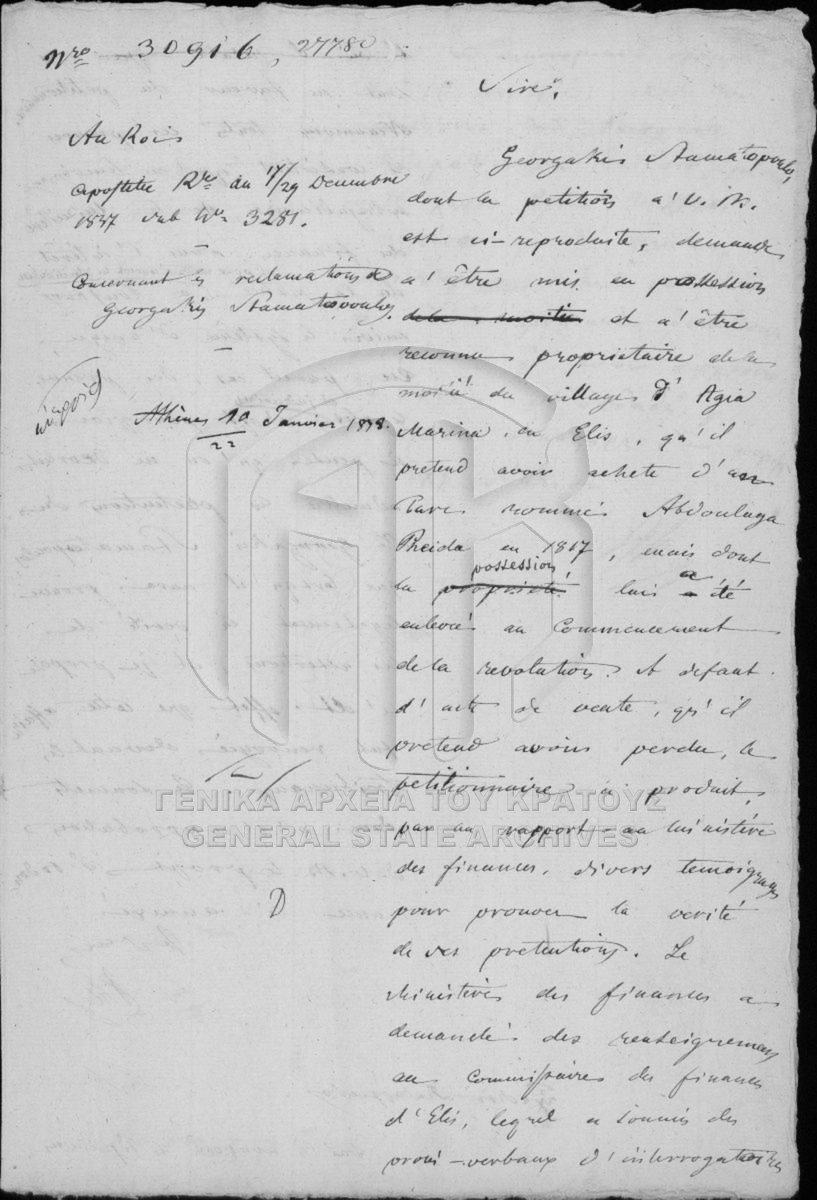 Nro 30916, 27780
Sire,
Au Roi
apostille Rle du 17/29 Decembre
1837 sub No 3281.
Concernant les reclamations de
Georgakis Stamatopoulos.
Athènes 10/22 Janvier 1838.
Georgakis Stamatopoulo,
dont la petition à V. M.
est ci-reproduite, demande
a être mis en possession
de la moitie et a être
reconnu proprietaire de la
moitié du village d'Agia
Marina, en Elis, qu'il
pretend avoir acheté d'un
Turc nommé Abdoulaga
Preida en 1817, mais dont
possession
la propriété lui a été
enlevée au commencement
de la revolution. A defaut
d'acte de vente, qu'il
pretend avoir perdu, le
petitionnaire a produit,
par un rapport au Ministère
des finances, divers temoignages
pour prouver la verité
de ses pretentions. Le
Ministère des finances a
demandé des renseignemens
au Commissaire des finances
d'Elis, lequel a soumis des
procès-verbaux d'interrogatoires
D
ΓΕΝΙΚΑ ΑΡΧΕΙΑ ΤΟΥ ΚΡΑΤΟΥΣ
GENERAL STATE ARCHIVES